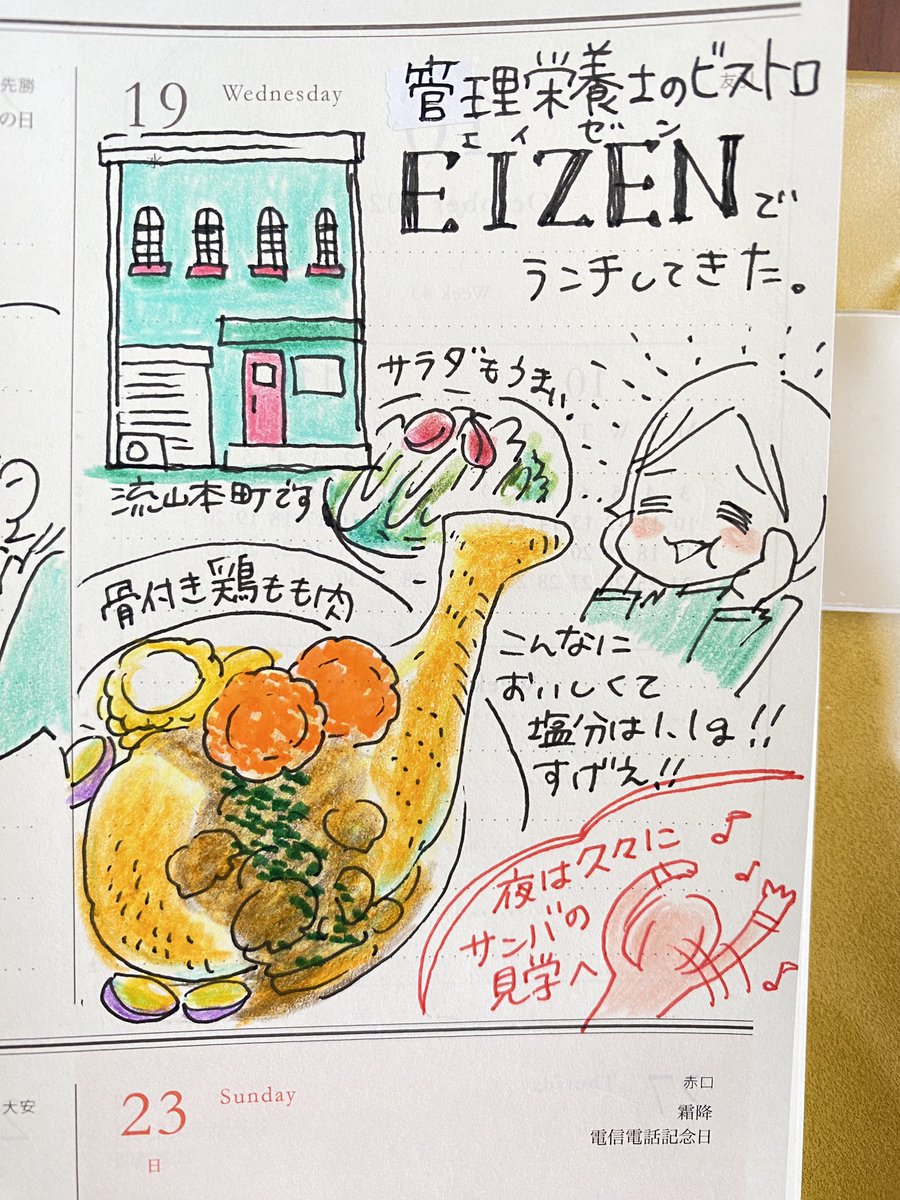 先勝
の日
19
Wednesday
水
管理栄養士のビストロ
エイゼン
EIZENで
ランチしてきた。
サラダもうまい
流山本町です
骨付き鶏もも肉
こんなに
おいしくて
塩分は1.1g!!
すげえ!!
夜は久々に
サンバの
見学へ
大安
23
Sunday
日
赤口
霜降
電信電話記念日